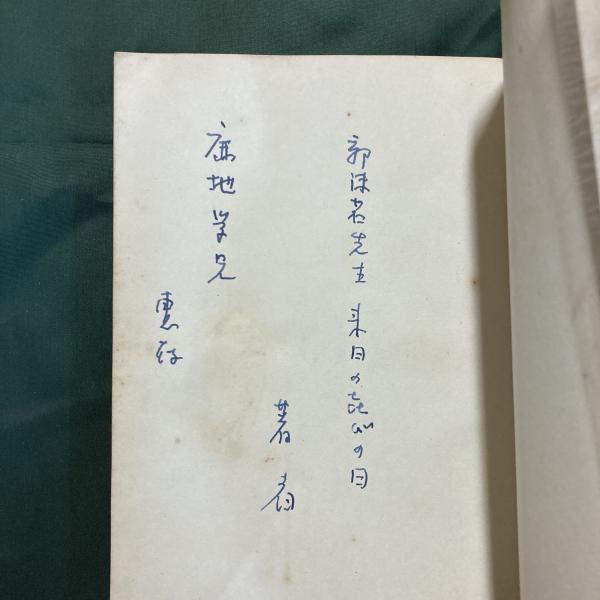 郭沫若先生 来日の の日
著者
鹿地学兄
恵存